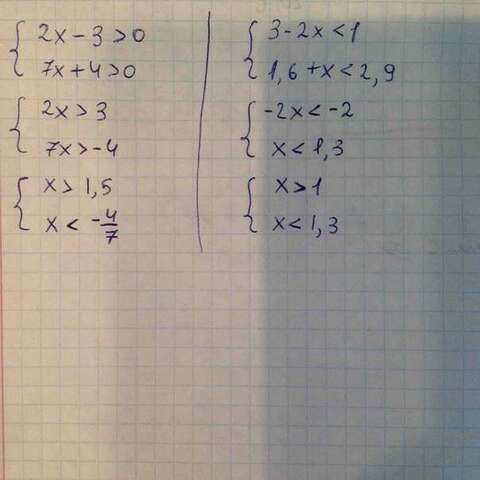 2x - 3 > 0
7x + 4 > 0
2x > 3
7x > -4
x > 1,5
x < -4/7
3 - 2x < 1
1,6 + x < 2,9
-2x < -2
x < 1,3
x > 1
x < 1,3